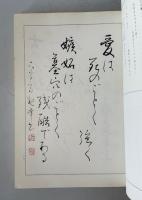 愛は
死のごとく強く
嫉妬は
墓穴のごとく
残酷である